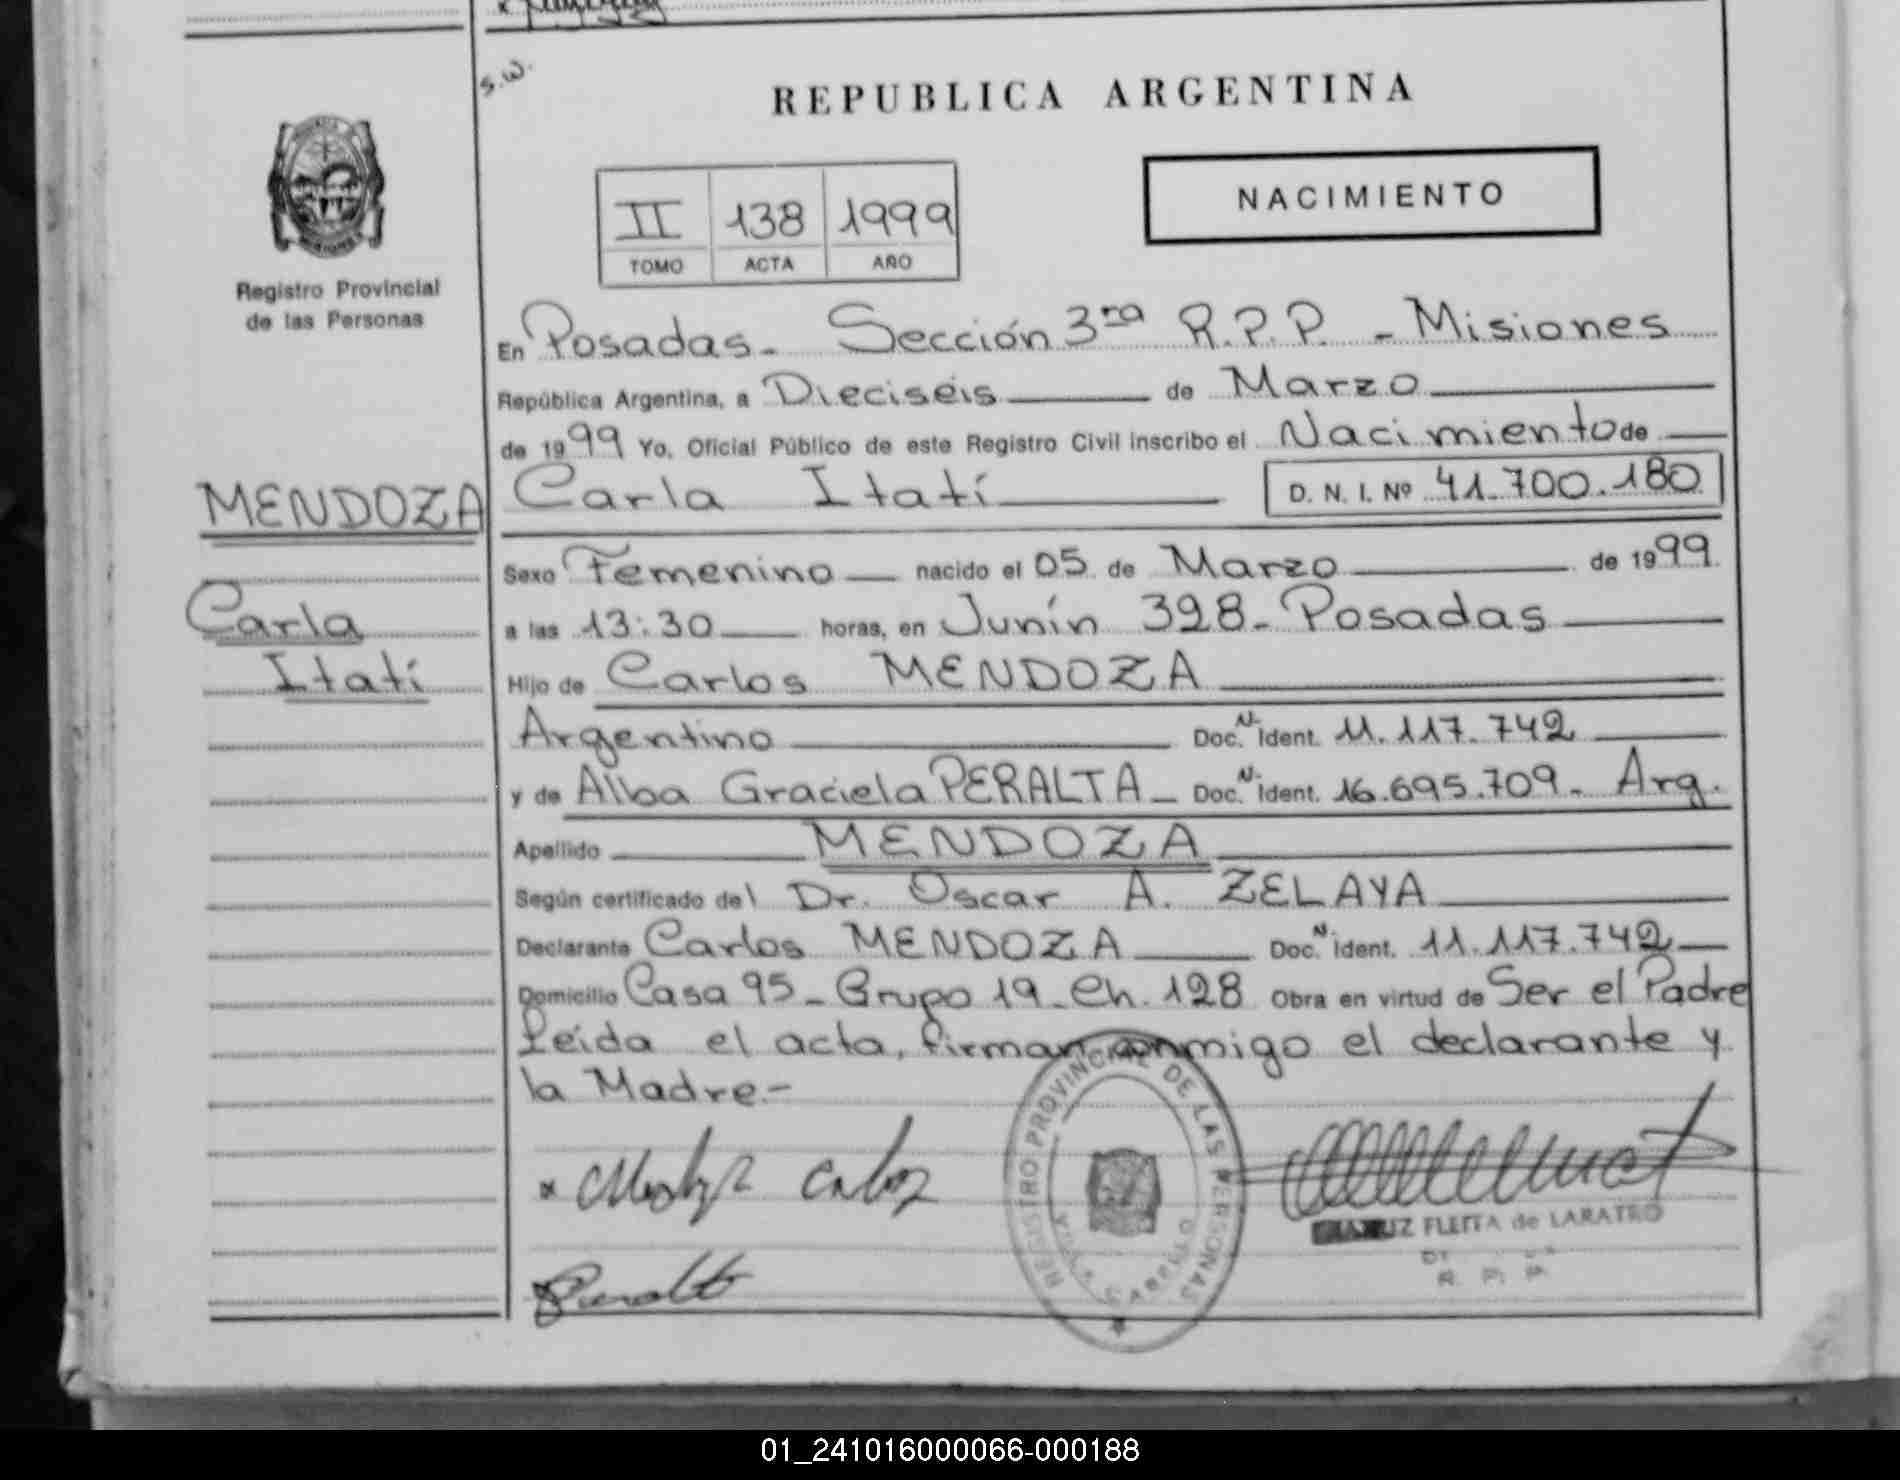 s.w.
REPUBLICA ARGENTINA
NACIMIENTO
II 138 1999
TOMO ACTA AÑO
Registro Provincial
de las Personas
En Posadas - Sección 3ra R.P.P. - Misiones
República Argentina, a Dieciséis de Marzo
de 1999 Yo, Oficial Público de este Registro Civil inscribo el Nacimiento de
MENDOZA
Carla Itatí D. N. I. Nº 41.700.180
Sexo Femenino nacido el 05 de Marzo de 1999
Carla
a las 13:30 horas, en Junín 328 - Posadas
Itatí
Hijo de Carlos MENDOZA
Argentino Doc. N. Ident. 11.117.742
y de Alba Graciela PERALTA - Doc. N. Ident. 16.695.709 - Arg.
Apellido MENDOZA
Según certificado del Dr. Oscar A. ZELAYA
Declarante Carlos MENDOZA Doc. N. Ident. 11.117.742
Domicilio Casa 95 - Grupo 19 - Ch. 128 Obra en virtud de Ser el Padre
Leída el acta, firman conmigo el declarante y
la Madre -
REGISTRO PROVINCIAL DE LAS PERSONAS
x Carlos
FLEITA de LARATRO
R. P. P.
x Peralta
01_241016000066-000188